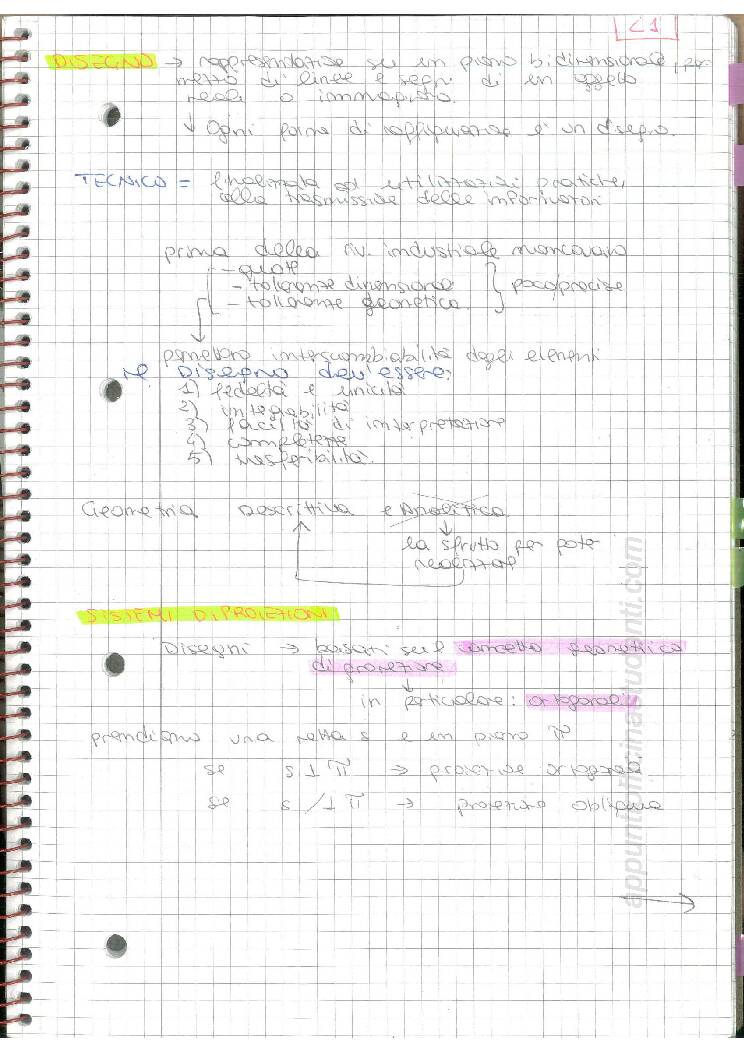 L1
DISEGNO → rappresentazione su un piano bidimensionale, per
mezzo di linee e segni di un oggetto
reale o immaginato.
↓ Ogni forma di raffigurazione è un disegno.
TECNICO = finalizzata ad utilizzazioni pratiche,
alla trasmissione delle informazioni
prima della riv. industriale mancavano
- quote
- tolleranze dimensionali
- tolleranze geometrica
poco precise
permettono interscambiabilità degli elementi
Il Disegno dev'essere:
1) fedeltà e unicità
2) integrabilità
3) facilità di interpretazione
4) completezza
5) trasferibilità
Geometria Descrittiva e Analitica
la sfrutto per poter
realizzare
SISTEMI DI PROIEZIONI
Disegni → basati sul concetto geometrico
di proiezione
in particolare: ortogonali
prendiamo una retta s e un piano π
se s ⊥ π → proiezione ortogonale
se s /⊥ π → proiezione obliqua
appuntiofficinastudenti.com